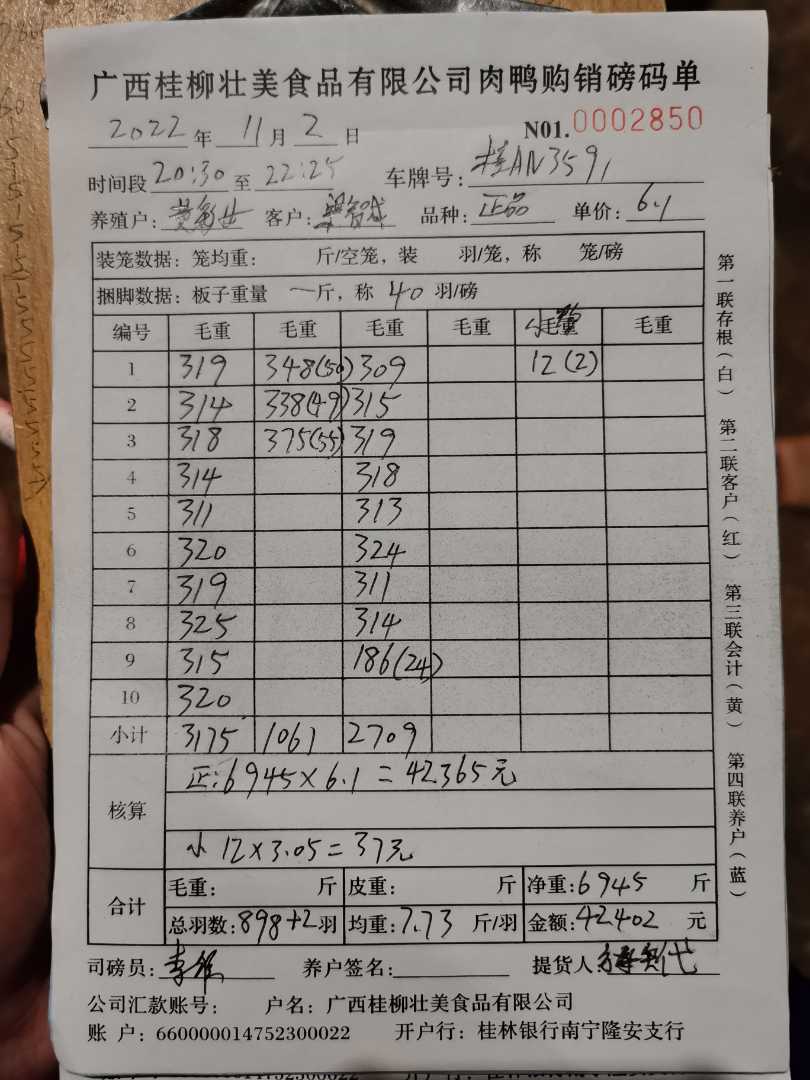 广西桂柳壮美食品有限公司肉鸭购销磅码单
2022年 11月 2日 N01.0002850
时间段 20:30 至 22:25 车牌号: 桂AN3591
养殖户: 客户: 品种: 正品 单价: 6.1
装笼数据: 笼均重: 斤/空笼, 装 羽/笼, 称 笼/磅
捆脚数据: 板子重量 一斤, 称 40 羽/磅
编号 毛重 毛重 毛重 毛重 小鸭 毛重 毛重
1 319 348(50) 309 12(2)
2 314 338(49) 315
3 318 375(55) 319
4 314 318
5 311 313
6 320 324
7 319 311
8 325 314
9 315 186(24)
10 320
小计 3175 1061 2709
核算
正:6945×6.1=42365元
小 12×3.05=37元
合计
毛重: 斤 皮重: 斤 净重:6945 斤
总羽数:898+2羽 均重:7.73 斤/羽 金额:42402 元
司磅员: 养户签名: 提货人
公司汇款账号: 户名: 广西桂柳壮美食品有限公司
账 户: 660000014752300022 开户行: 桂林银行南宁隆安支行
第一联存根(白) 第二联客户(红) 第三联会计(黄) 第四联养户(蓝)